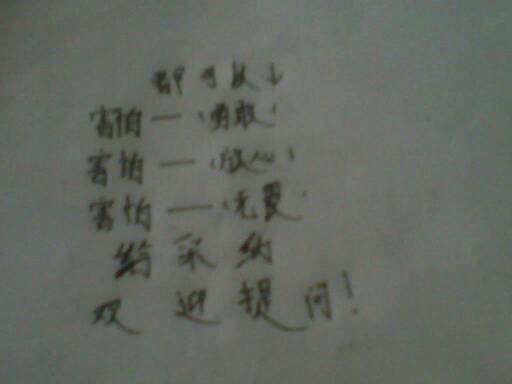 都可以↓
害怕—(勇敢)
害怕—(放心)
害怕—(无畏)
给采纳
欢迎提问!